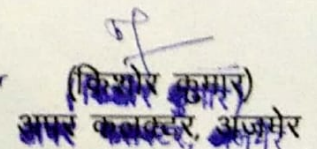 (किशोर कुमार)
अपर कलक्टर, अजमेर